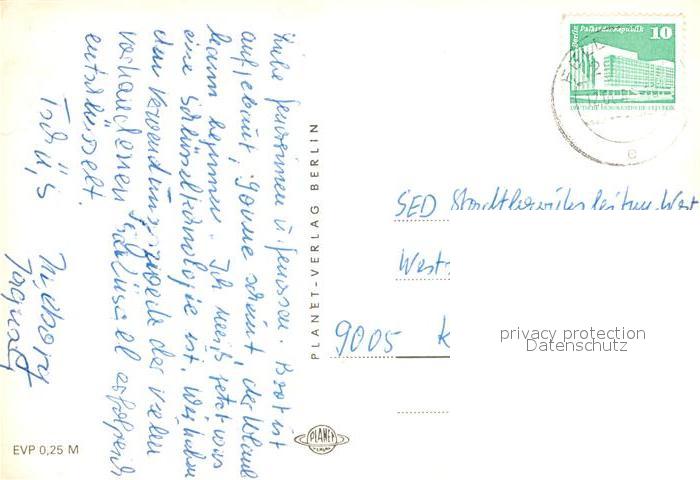 Liebe Genossinnen u. Genossen. Boot ist
aufgebaut, Sonne scheint, der Urlaub
kann beginnen. Ich weiß jetzt was
eine Schlüsseltechnologie ist. Wir haben
den Verwendungszweck der vielen
vorhandenen Schlüssel erfolgreich
entschlüsselt.
Tschüß
PLANET-VERLAG BERLIN
PLANET
EVP 0,25 M
Berlin Palast der Republik
10
DEUTSCHE DEMOKRATISCHE REPUBLIK
e
SED Stadtbezirksleitung West
West
9005 K
privacy protection
Datenschutz